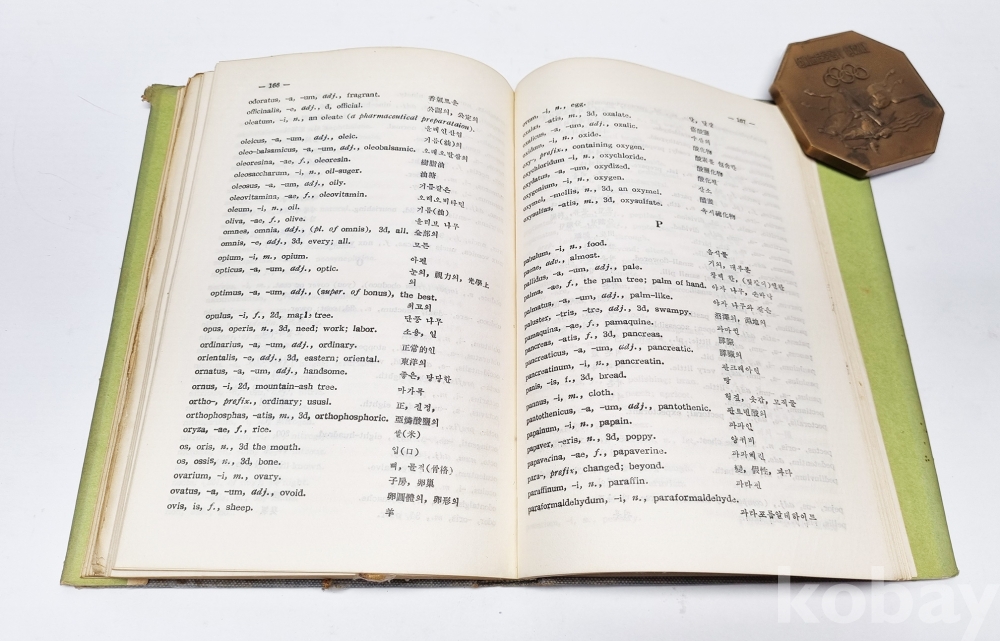 — 166 —
odoratus, -a, -um, adj., fragrant. 香氣로운
officinalis, -e, adj., d, official. 公認의, 公定의
oleatum, -i, n., an oleate (a pharmaceutical preparataion).
올레인산염
oleicus, -a, -um, adj., oleic. 기름(油)의
oleo-balsamicus, -a, -um, adj., oleobalsamic. 오레오발삼의
oleoresina, -ae, f., oleoresin. 樹脂油
oleosaccharum, -i, n., oil-suger. 油糖
oleosus, -a, -um, adj., oily. 기름같은
oleovitamina, -ae, f., oleovitamin. 오레오비타민
oleum, -i, n., oil. 기름(油)
oliva, -ae, f., olive. 올리브 나무
omnes, omnia, adj., (pl. of omnis), 3d, all. 全部의
omnis, -e, adj., 3d, every; all. 모든
opium, -i, m., opium. 아편
opticus, -a, -um, adj., optic. 눈의, 視力의, 光學上
의
optimus, -a, -um, adj., (super. of bonus), the best.
최고의
opulus, -i, f., 2d, maple tree. 단풍 나무
opus, operis, n., 3d, need; work; labor. 소용, 일
ordinarius, -a, -um, adj., ordinary. 正常的인
orientalis, -e, adj., 3d, eastern; oriental. 東洋의
ornatus, -a, -um, adj., handsome. 좋은, 당당한
ornus, -i, 2d, mountain-ash tree. 마가목
ortho-, prefix., ordinary; ususl. 正, 진정,
orthophosphas, -atis, m., 3d, orthophosphoric. 亞燐酸鹽의
oryza, -ae, f., rice. 쌀(米)
os, oris, n., 3d the mouth. 입(口)
os, ossis, n., 3d, bone. 뼈, 골격(骨格)
ovarium, -i, m., ovary. 子房, 卵巢
ovatus, -a, -um, adj., ovoid. 卵圓體의, 卵形의
ovis, is, f., sheep. 羊
— 167 —
ovum, -i, n., egg. 알, 달걀
oxalas, -atis, m., 3d, oxalate. 蓚酸鹽
oxalicus, -a, -um, adj., oxalic.
oxidum, -i, n., oxide. 酸化物
oxy-, prefix, containing oxygen.
oxychloridum -i, n., oxychloride.
oxydatus, -a, -um, oxydized.
oxygenium, -i, n., oxygen. 산소
oxymel, -mellis, n., 3d, an oxymel.
oxysulfas, -atis, m., 3d, oxysulfate. 옥시硫化物
P
pabulum, -i, n., food. 음식물
paene, adv., almost. 거의, 대부분
pallidus, -a, -um, adj., pale.
palma, -ae, f., the palm tree; palm of hand. 야자 나무, 손바닥
palmatus, -a, -um, adj., palm-like. 야자 나무와 같은
paluster, -tris, -tre, adj., 3d, swampy. 沼澤의, 濕地의
pamaquina, -ae, f., pamaquine. 파마퀸
pancreas, -atis, f., 3d, pancreas. 膵臟
pancreaticus, -a, -um, adj., pancreatic. 膵臟의
pancreatinum, -i, n., pancreatin. 판크레아틴
panis, -is, f., 3d, bread. 빵
pannus, -i, m., cloth. 헝겊, 옷감, 모직물
pantothenicus, -a, -um, adj., pantothenic. 판토텐酸의
papainum, -i, n., papain. 파파인
papaver, -eris, n., 3d, poppy. 양귀비
papaverina, -ae, f., papaverine. 파파베린
para-, prefix, changed; beyond. 變, 假性, 파라
paraffinum, -i, n., paraffin. 파라핀
paraformaldehydum, -i, n., paraformaldehyde.
파라포름알데하이드
kobay